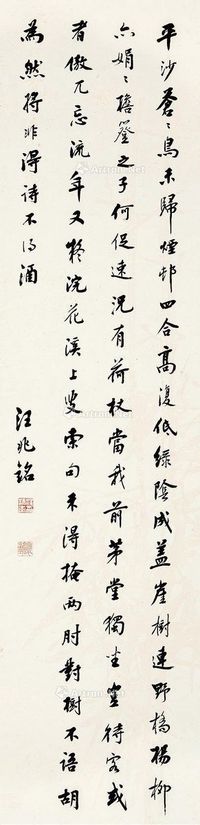 平沙蒼〻鳥未歸煙邨四合高復低綠陰成蓋崖樹連野橋楊柳
亦娟〻擔簦之子何促速況有荷杖當我前茅堂獨坐豈待客或
者傲兀忘流年又疑浣花溪上叟索句未得掩兩肘對樹不語胡
為然將非得詩不得酒
汪兆銘